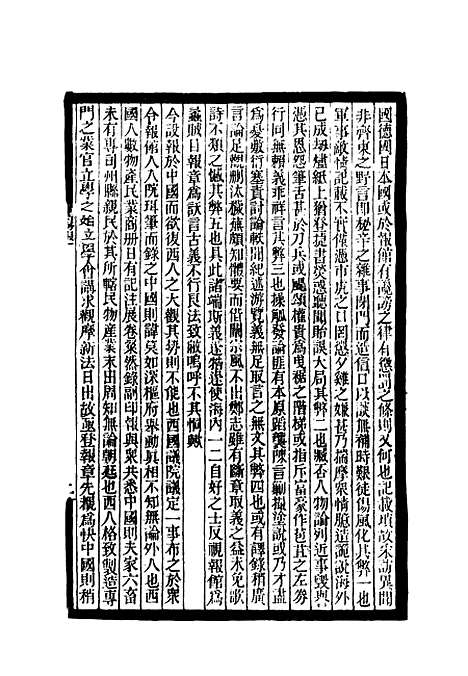 國德國日本國或於報館有讕謗之律有懲罰之條則又何也記載瑣故采訪異聞
非齊東之野言即秘辛之雜事閉門而造信口以談無補時艱徒傷風化其弊一也
軍事敵情記載不實僅憑市虎之口罔懲夕雞之嫌甚乃揣摩衆情臆造詭說海外
已成劫燼紙上猶登捷書熒惑聽聞貽誤大局其弊二也臧否人物論列近事毀譽
憑其恩怨筆舌甚於刀兵或颺頌權貴爲曳裾之階梯或指斥富豪作苞苴之左劵
行同無賴義乖祥言其弊三也操觚發論匪有本原蹈襲陳言勦撮塗說或乃才盡
爲憂敷衍塞責討論軼聞紀述游覽義無足取言之無文其弊四也或有譯錄稍廣
言論足觀删汰穢蕪頗知體要而借闕宗風不出鄭志雖有斷章取義之益未免歌
詩不類之憾其弊五也具此諸端斯義遂牿遂使海內一二自好之士反視報館爲
蝥賊目報章爲訞言古義不行良法致敝嗚呼不其恫歟
今設報於中國而欲復西人之大觀其勢則不能也西國議院議定一事布之於衆
令報館人入院珥筆而錄之中國則諱莫如深樞府舉動真相不知無論外人也西
國人數物產民業商册日有記注展卷粲然錄副印報與衆共悉中國則夫家六畜
未有專司州縣親民於其所轄民物產業末由周知無論朝廷也西人格致製造專
門之業官立學校士立學會講求觀摩新法日出故亟登報章先覩爲快中國則稍